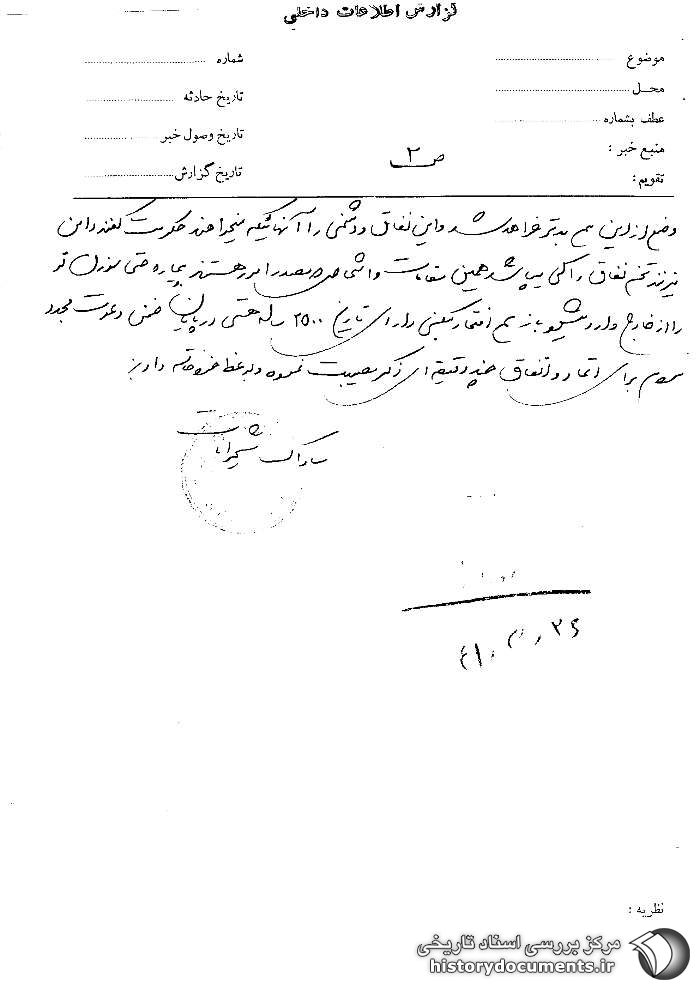 گزارش اطلاعات داخلی
موضوع
شماره
محل
تاریخ حادثه
عطف بشماره
تاریخ وصول خبر
منبع خبر :
تاریخ گزارش
تقویم :
ص ۲
وضع از این هم بدتر خواهد شد و این نفاق و دشمنی را آنهائیکه میخواهند حکومت کنند دامن
میزنند تخم نفاق را کی می پاشد همین مقامات و اشخاص که مصدر امور هستند بیچاره ملتی سوزن ته
را از خارج وارد میکند باز هم افتخار میکنی دارای تاریخ ۲۵۰۰ ساله هستی در پایان ضمن دعوت مجدد
مردم برای اتحاد و اتفاق چند دقیقه ای ذکر مصیبت نموده و به وعظ خود خاتمه دادند
ساواک شمیرانات
۲۶
۴۱
نظریه :
مرکز بررسی اسناد تاریخی
historydocuments.ir